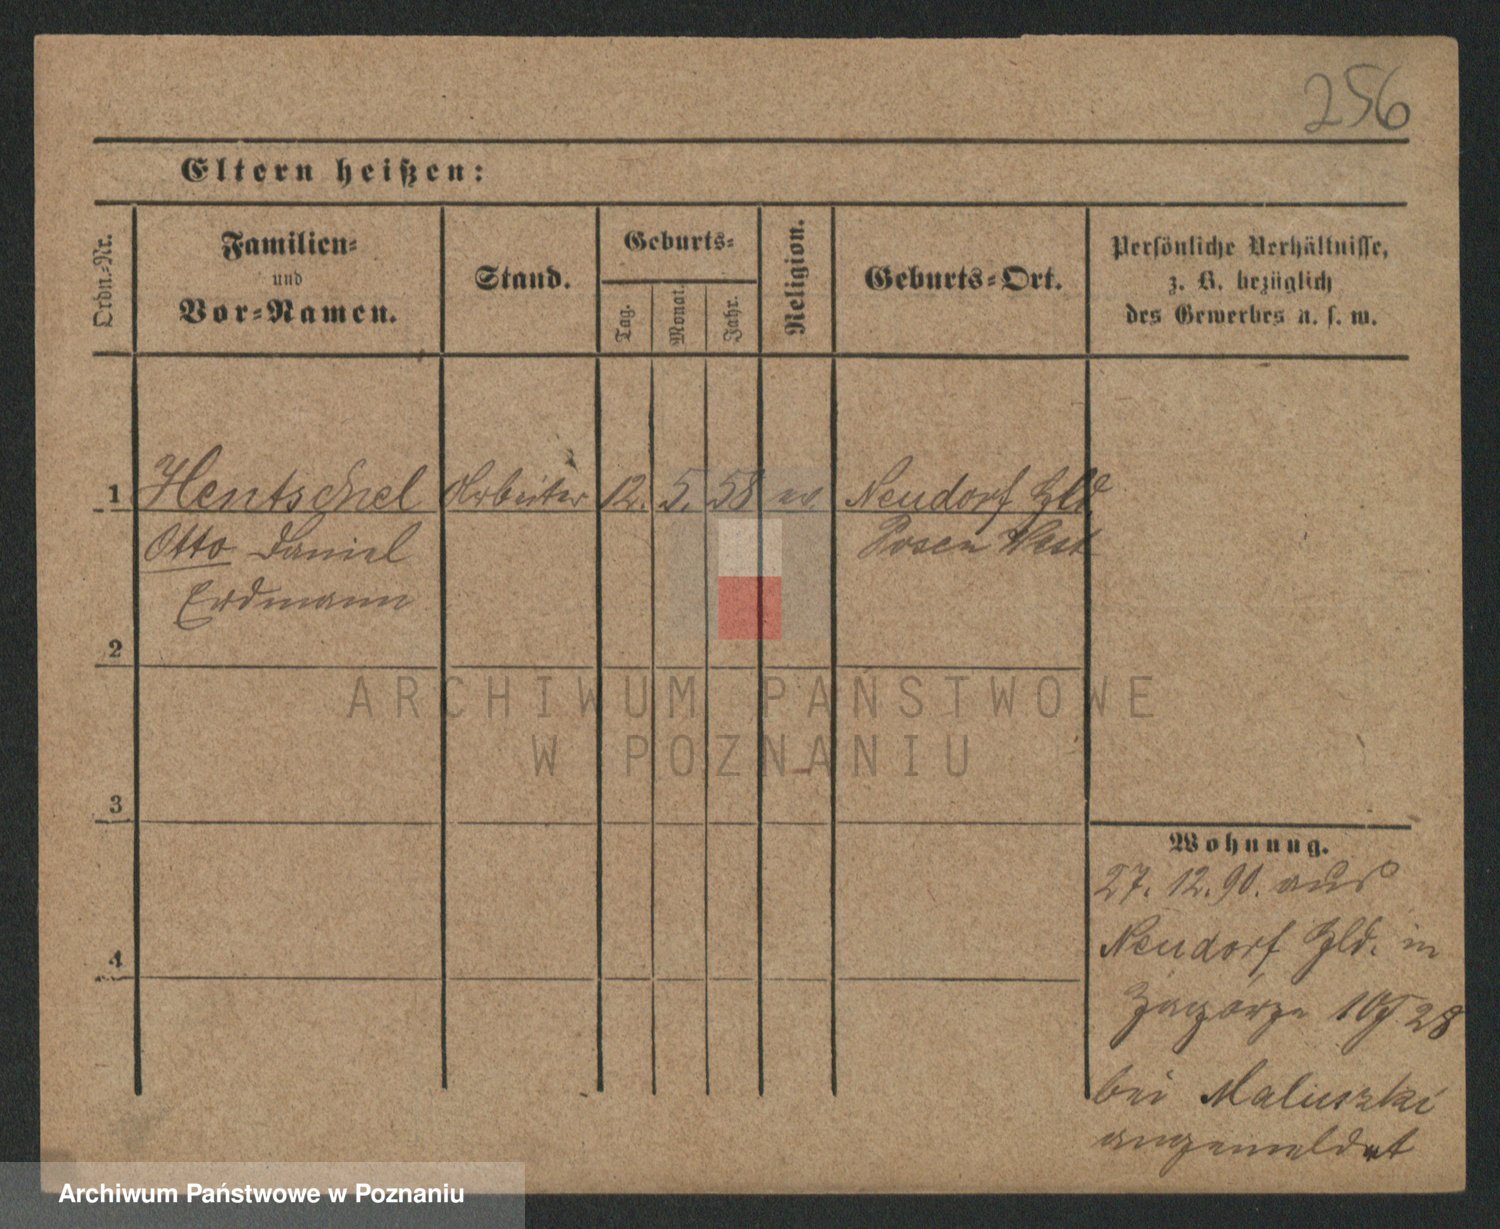 256
Eltern heißen:
Ordn.-Nr.
Familien-
und
Vor-Namen.
Stand.
Geburts-
Tag.
Monat.
Jahr.
Religion.
Geburts-Ort.
Persönliche Verhältnisse,
z. B. bezüglich
des Gewerbes u. s. w.
1 Hentschel Arbeiter 12. 5. 58 ev. Neudorf Hld
Otto Daniel Posen West
Erdmann
2
3
4
Wohnung.
27. 12. 90. aus
Neudorf Hld. in
Zagórze 28
bei Maluszki
angemeldet
ARCHIWUM PAŃSTWOWE
W POZNANIU
Archiwum Państwowe w Poznaniu